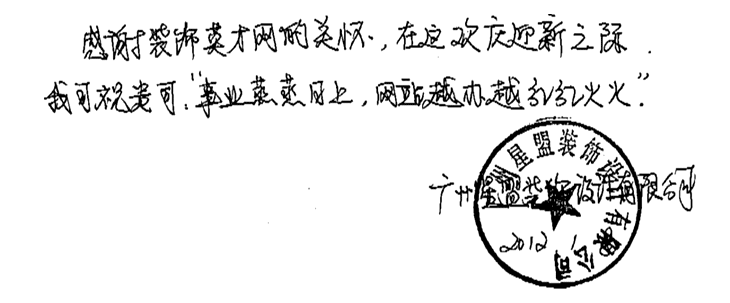 感谢装饰英才网的关怀,在这欢庆迎新之际.
我司祝贵司:"事业蒸蒸日上,网站越办越红红火火".
广州星盟装饰设计有限公司
2012
星盟装饰设 有限公司